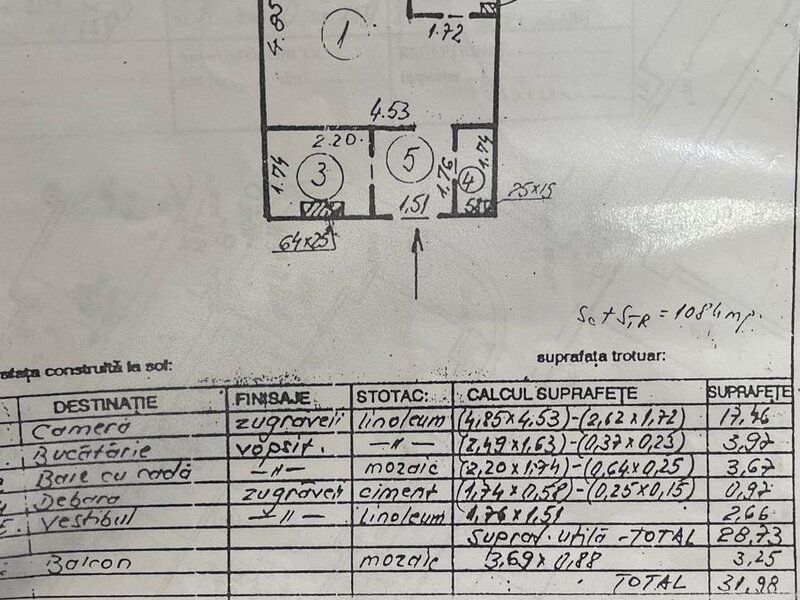 4.85
1
1.72
4.53
2.20
1.74
3
5
1.76
4
1.74
1.51
64x25
25x15
Sc + STR = 1084 mp.
suprafața trotuar:
afața construită la sol:
DESTINAȚIE FINISAJE STOTAC: CALCUL SUPRAFEȚE SUPRAFEȚE
Cameră zugrăveli linoleum (4,85x4,53)-(2,62x1,72) 17,46
Bucătărie vopsit. -"- (2,49x1,63)-(0,37x0,23) 3,97
Baie cu cadă -"- mozaic (2,20x1,74)-(0,64x0,25) 3,67
Debara zugrăveli ciment (1,74x0,58)-(0,25x0,15) 0,97
Vestibul -"- linoleum 1,76x1,51 2,66
Supraf. utilă -TOTAL 28,73
Balcon mozaic 3,69x0,88 3,25
TOTAL 31,98